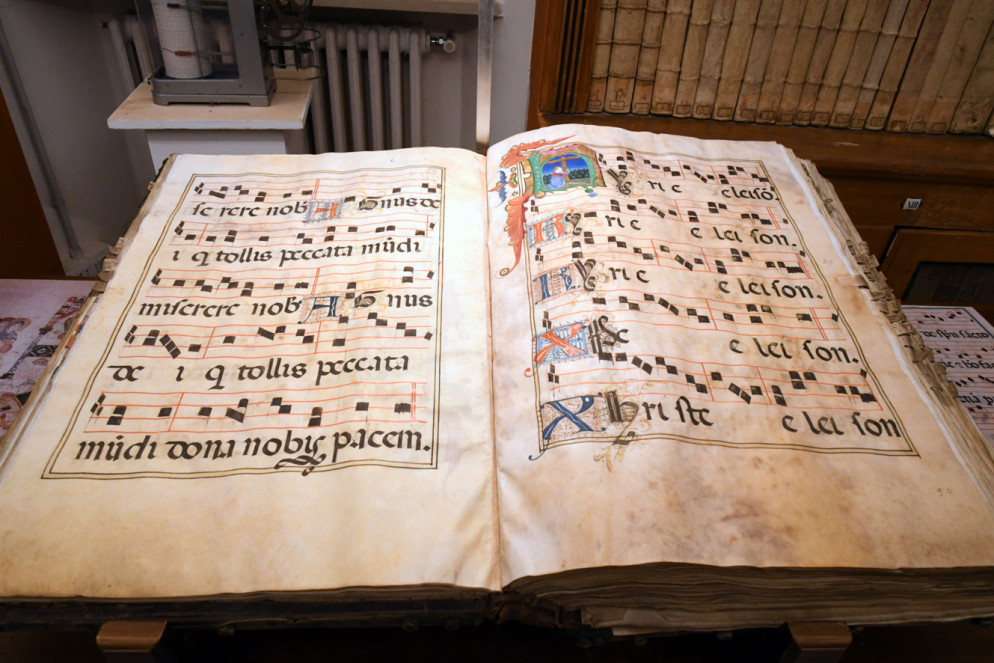 serere nob Agnus de
i q tollis peccata mūdi
miserere nob Agnus
de i q tollis peccata
mūdi dona nobis pacem.
Kyrie eleisō.
Kyrie eleison.
Kyrie eleison.
Xpe eleison.
Xhriste eleison
XIII